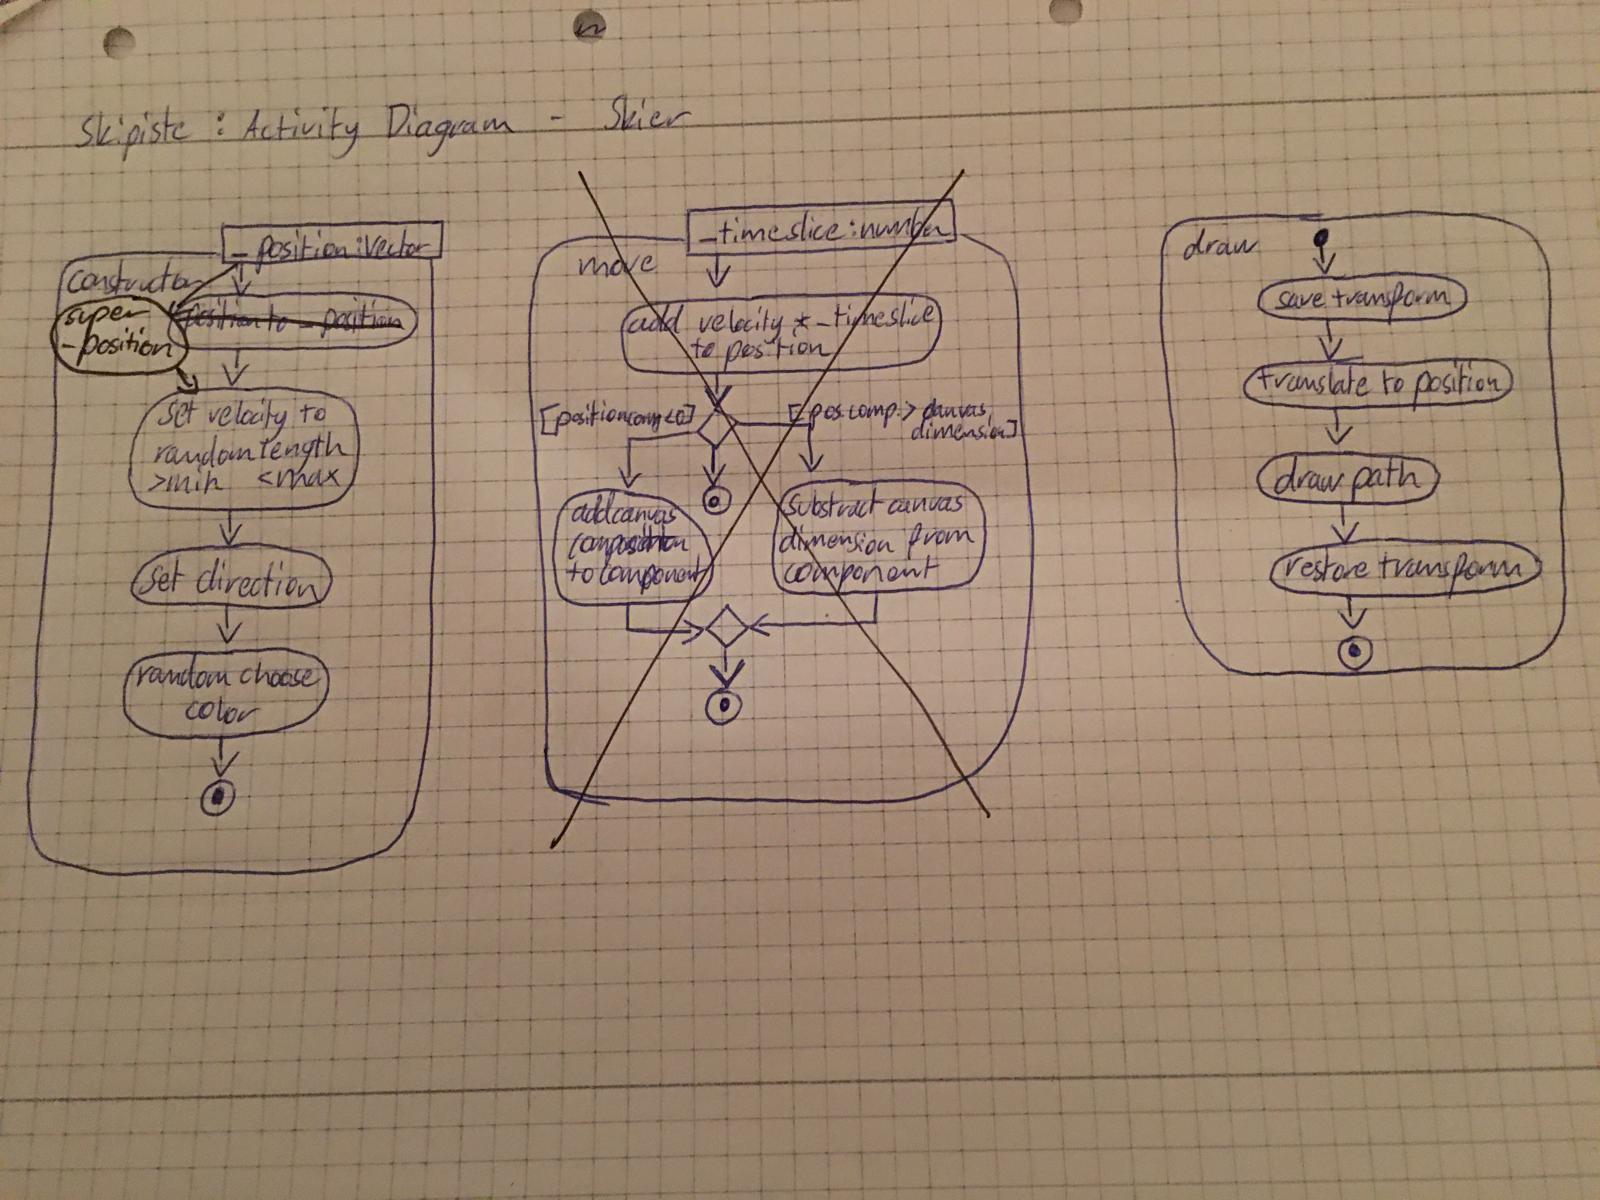 Skipiste : Activity Diagram - Skier
_position:Vector
constructor
super
_position
position to _position
set velocity to
random length
>min <max
set direction
random choose
color
_timeslice:number
move
add velocity * _timeslice
to position
[position comp<0]
[pos.comp.> canvas
dimension]
add canvas
to component
substract canvas
dimension from
component
draw
save transform
translate to position
draw path
restore transform